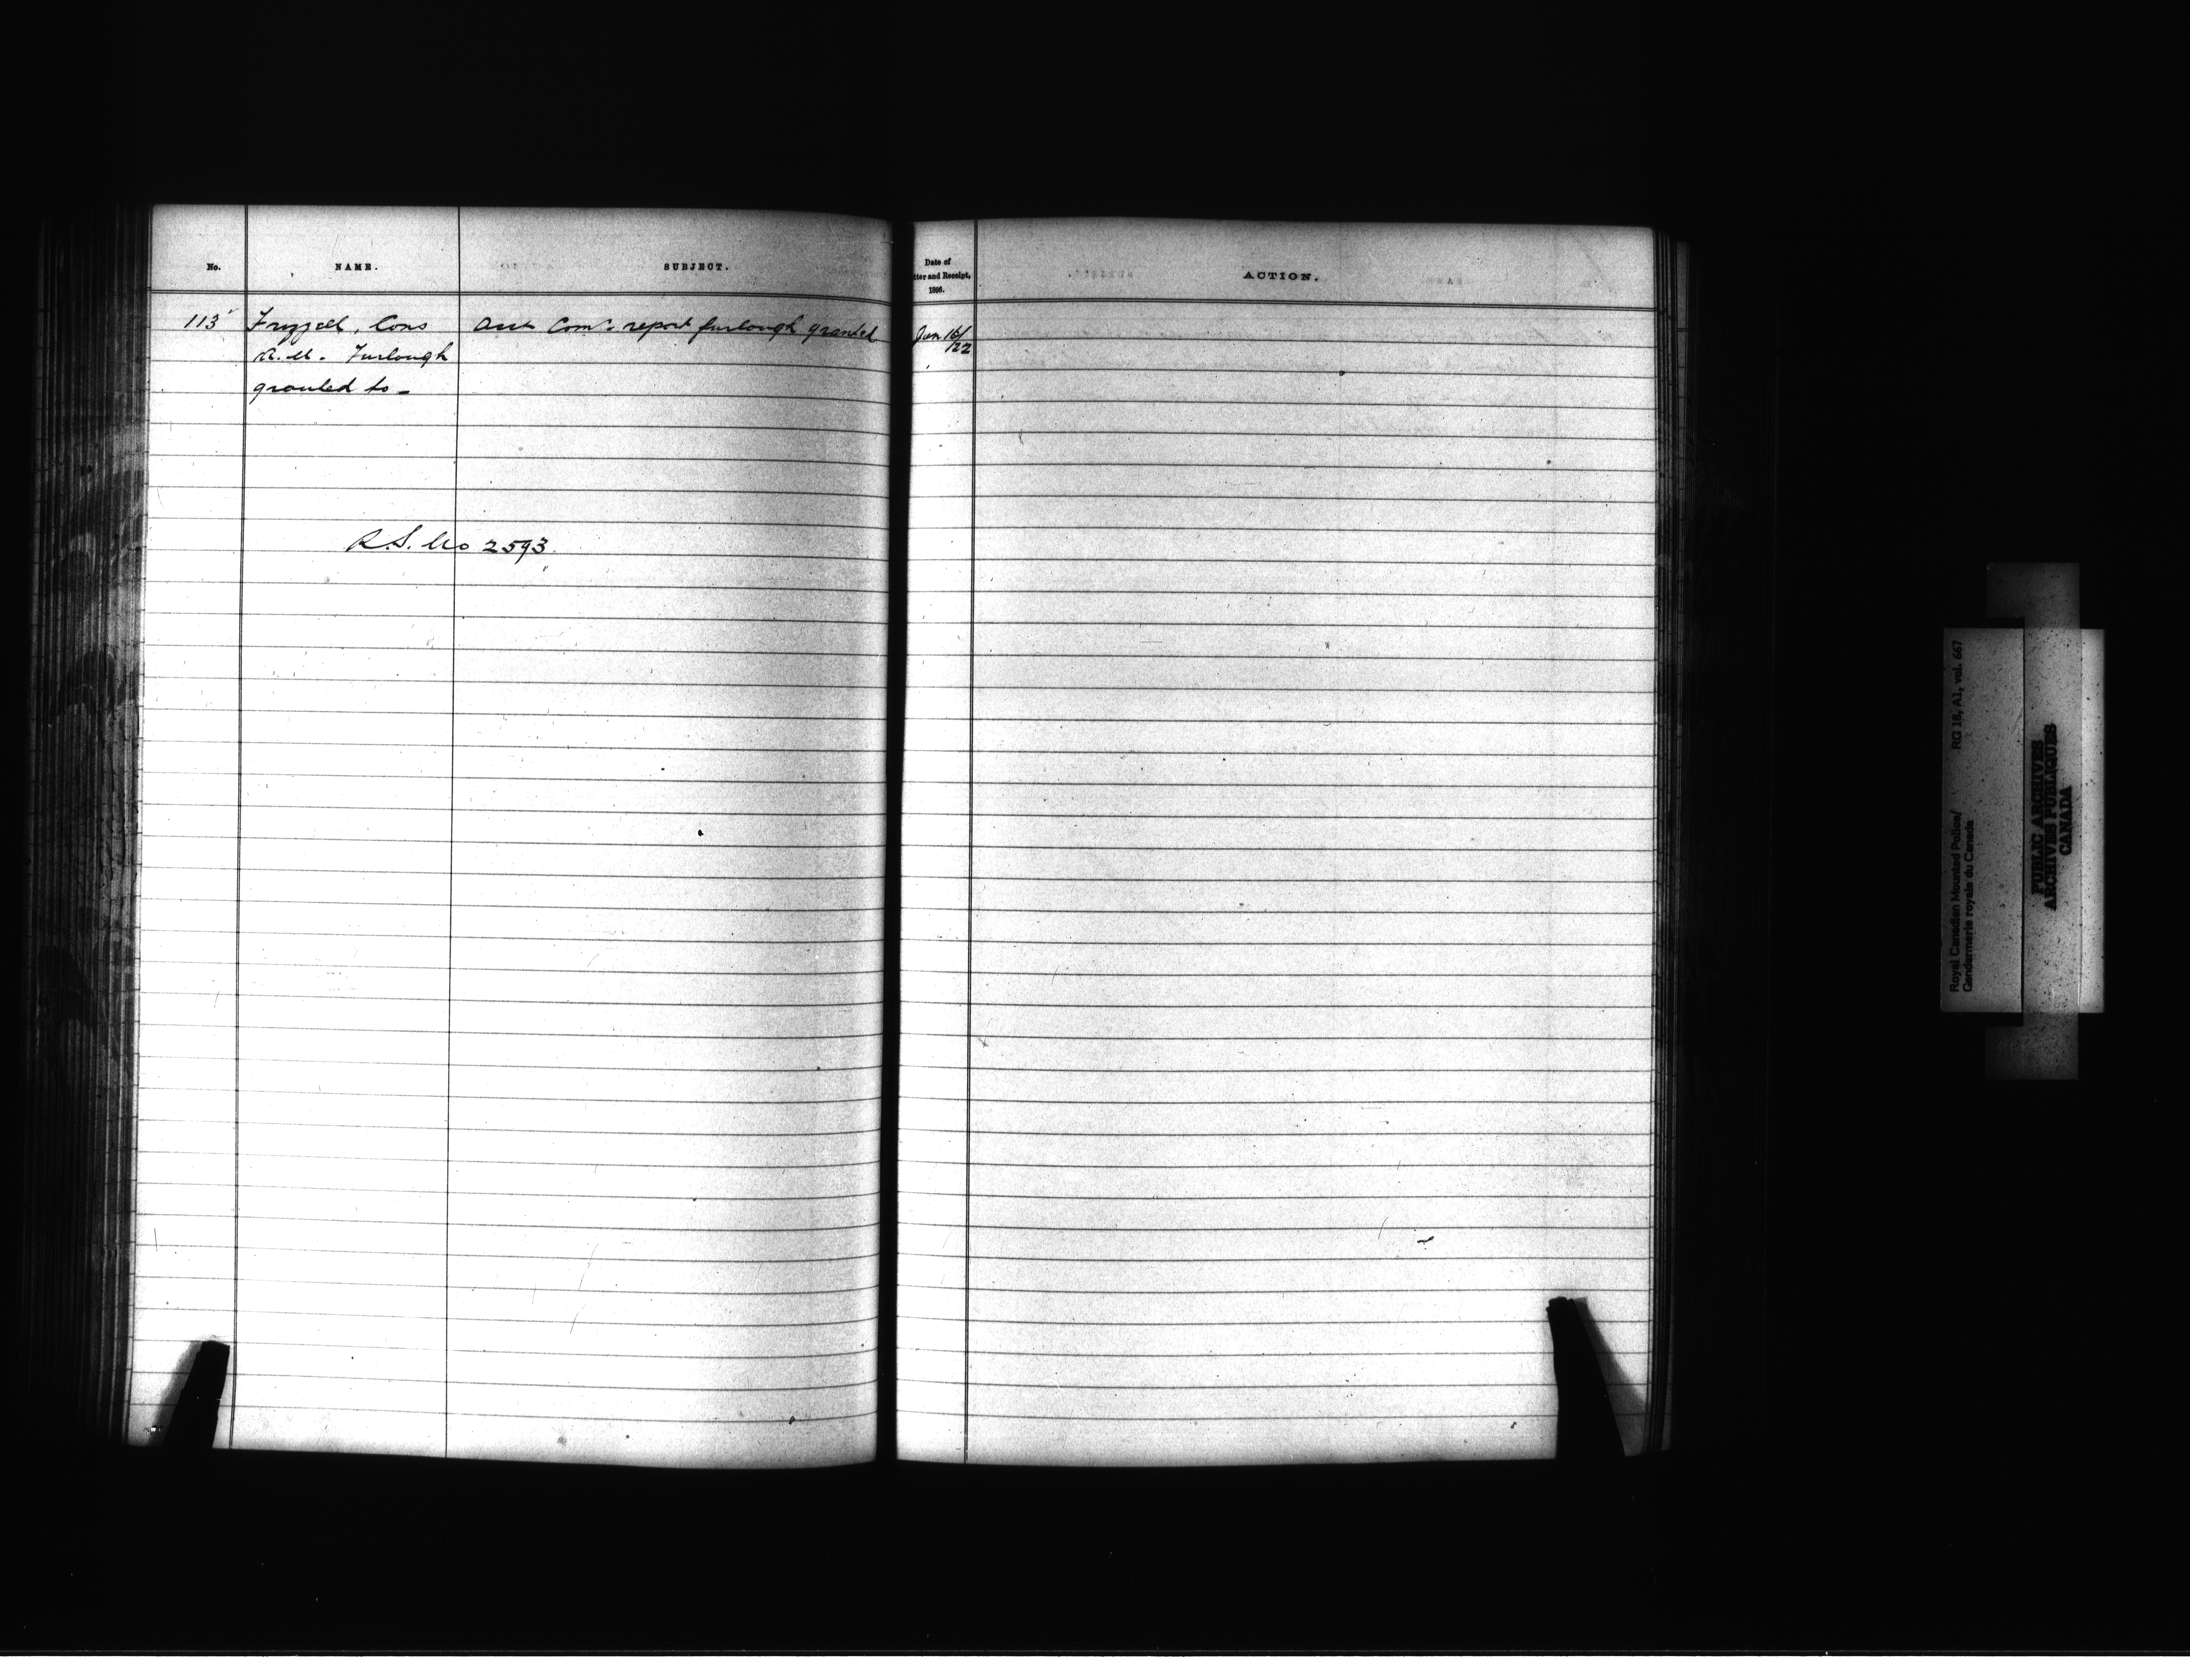 No.
NAME.
SUBJECT.
Date of
tter and Receipt,
1896.
ACTION.
113 Cons Comr. report furlough granted Jan 16/
Furlough /22
granted to -
R.S. No 2593.
Royal Canadian Mounted Police/ RG 18, A1, vol. 667
Gendarmerie royale du Canada
PUBLIC ARCHIVES
ARCHIVES PUBLIQUES
CANADA